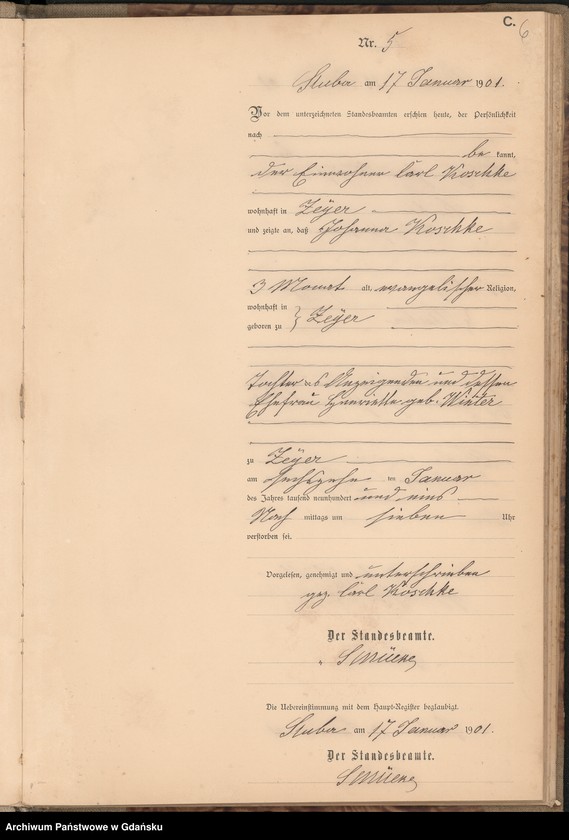 C.
6
Nr. 5
Stuba am 17 Januar 1901.
Vor dem unterzeichneten Standesbeamten erschien heute, der Persönlichkeit
nach
be kannt,
der Einwohner Carl Koschke
wohnhaft in Zeÿer
und zeigte an, daß Johanna Koschke
3 Monat alt, evangelischer Religion,
wohnhaft in
geboren zu } Zeÿer
Tochter des Anzeigenden und dessen
Ehefrau Henriette geb. Winter
zu Zeÿer
am sechszehn ten Januar
des Jahres tausend neunhundert und eins
Nach mittags um sieben Uhr
verstorben sei.
Vorgelesen, genehmigt und unterschrieben
gez. Carl Koschke
Der Standesbeamte.
Die Uebereinstimmung mit dem Haupt-Register beglaubigt.
Stuba am 17 Januar 1901.
Der Standesbeamte.
Archiwum Państwowe w Gdańsku